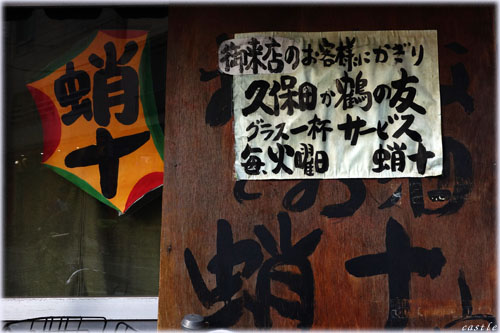 蛸
十
御来店のお客様にかぎり
久保田か鶴の友
グラス一杯 サービス
毎火曜日 蛸十
蛸十
castle